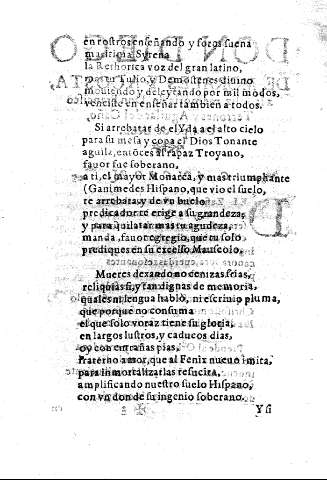 en rostros enseñando y foros suena
maritima Syrena
la Rethorica voz del gran latino,
mas tu Tulio, y Demostenes diuino
mouiendo y deleytando por mil modos,
venciste en enseñar tambien a todos.
Si arrebatar del Yda a el alto cielo
para su mesa y copa el Dios Tonante
aguila, entõces al rapaz Troyano,
fauor fue soberano,
a ti, el mayor Monarca, y mas triumphante
(Ganimedes Hispano, que vio el suelo,
te arrebata, y de vn buelo
predicador te erige a su grandeza,
y para quilatar mas tu agudeza,
manda, fauor egregio, que tu solo
prediques en su excelso Mauseolo,
Mueres dexando no cenizas frias,
reliquias si, tan dignas de memoria,
quales ni lengua hablò, ni escriuio pluma,
que porque no consuma
el que solo voraz tiene su gloria,
en largos lustros, y caducos dias,
oy con entrañas pias,
fraterno amor, que al Fenix nueuo imita,
para inmortalizarlas resucita,
amplificando nuestro suelo Hispano,
con vn don de su ingenio soberano.
2 Y si